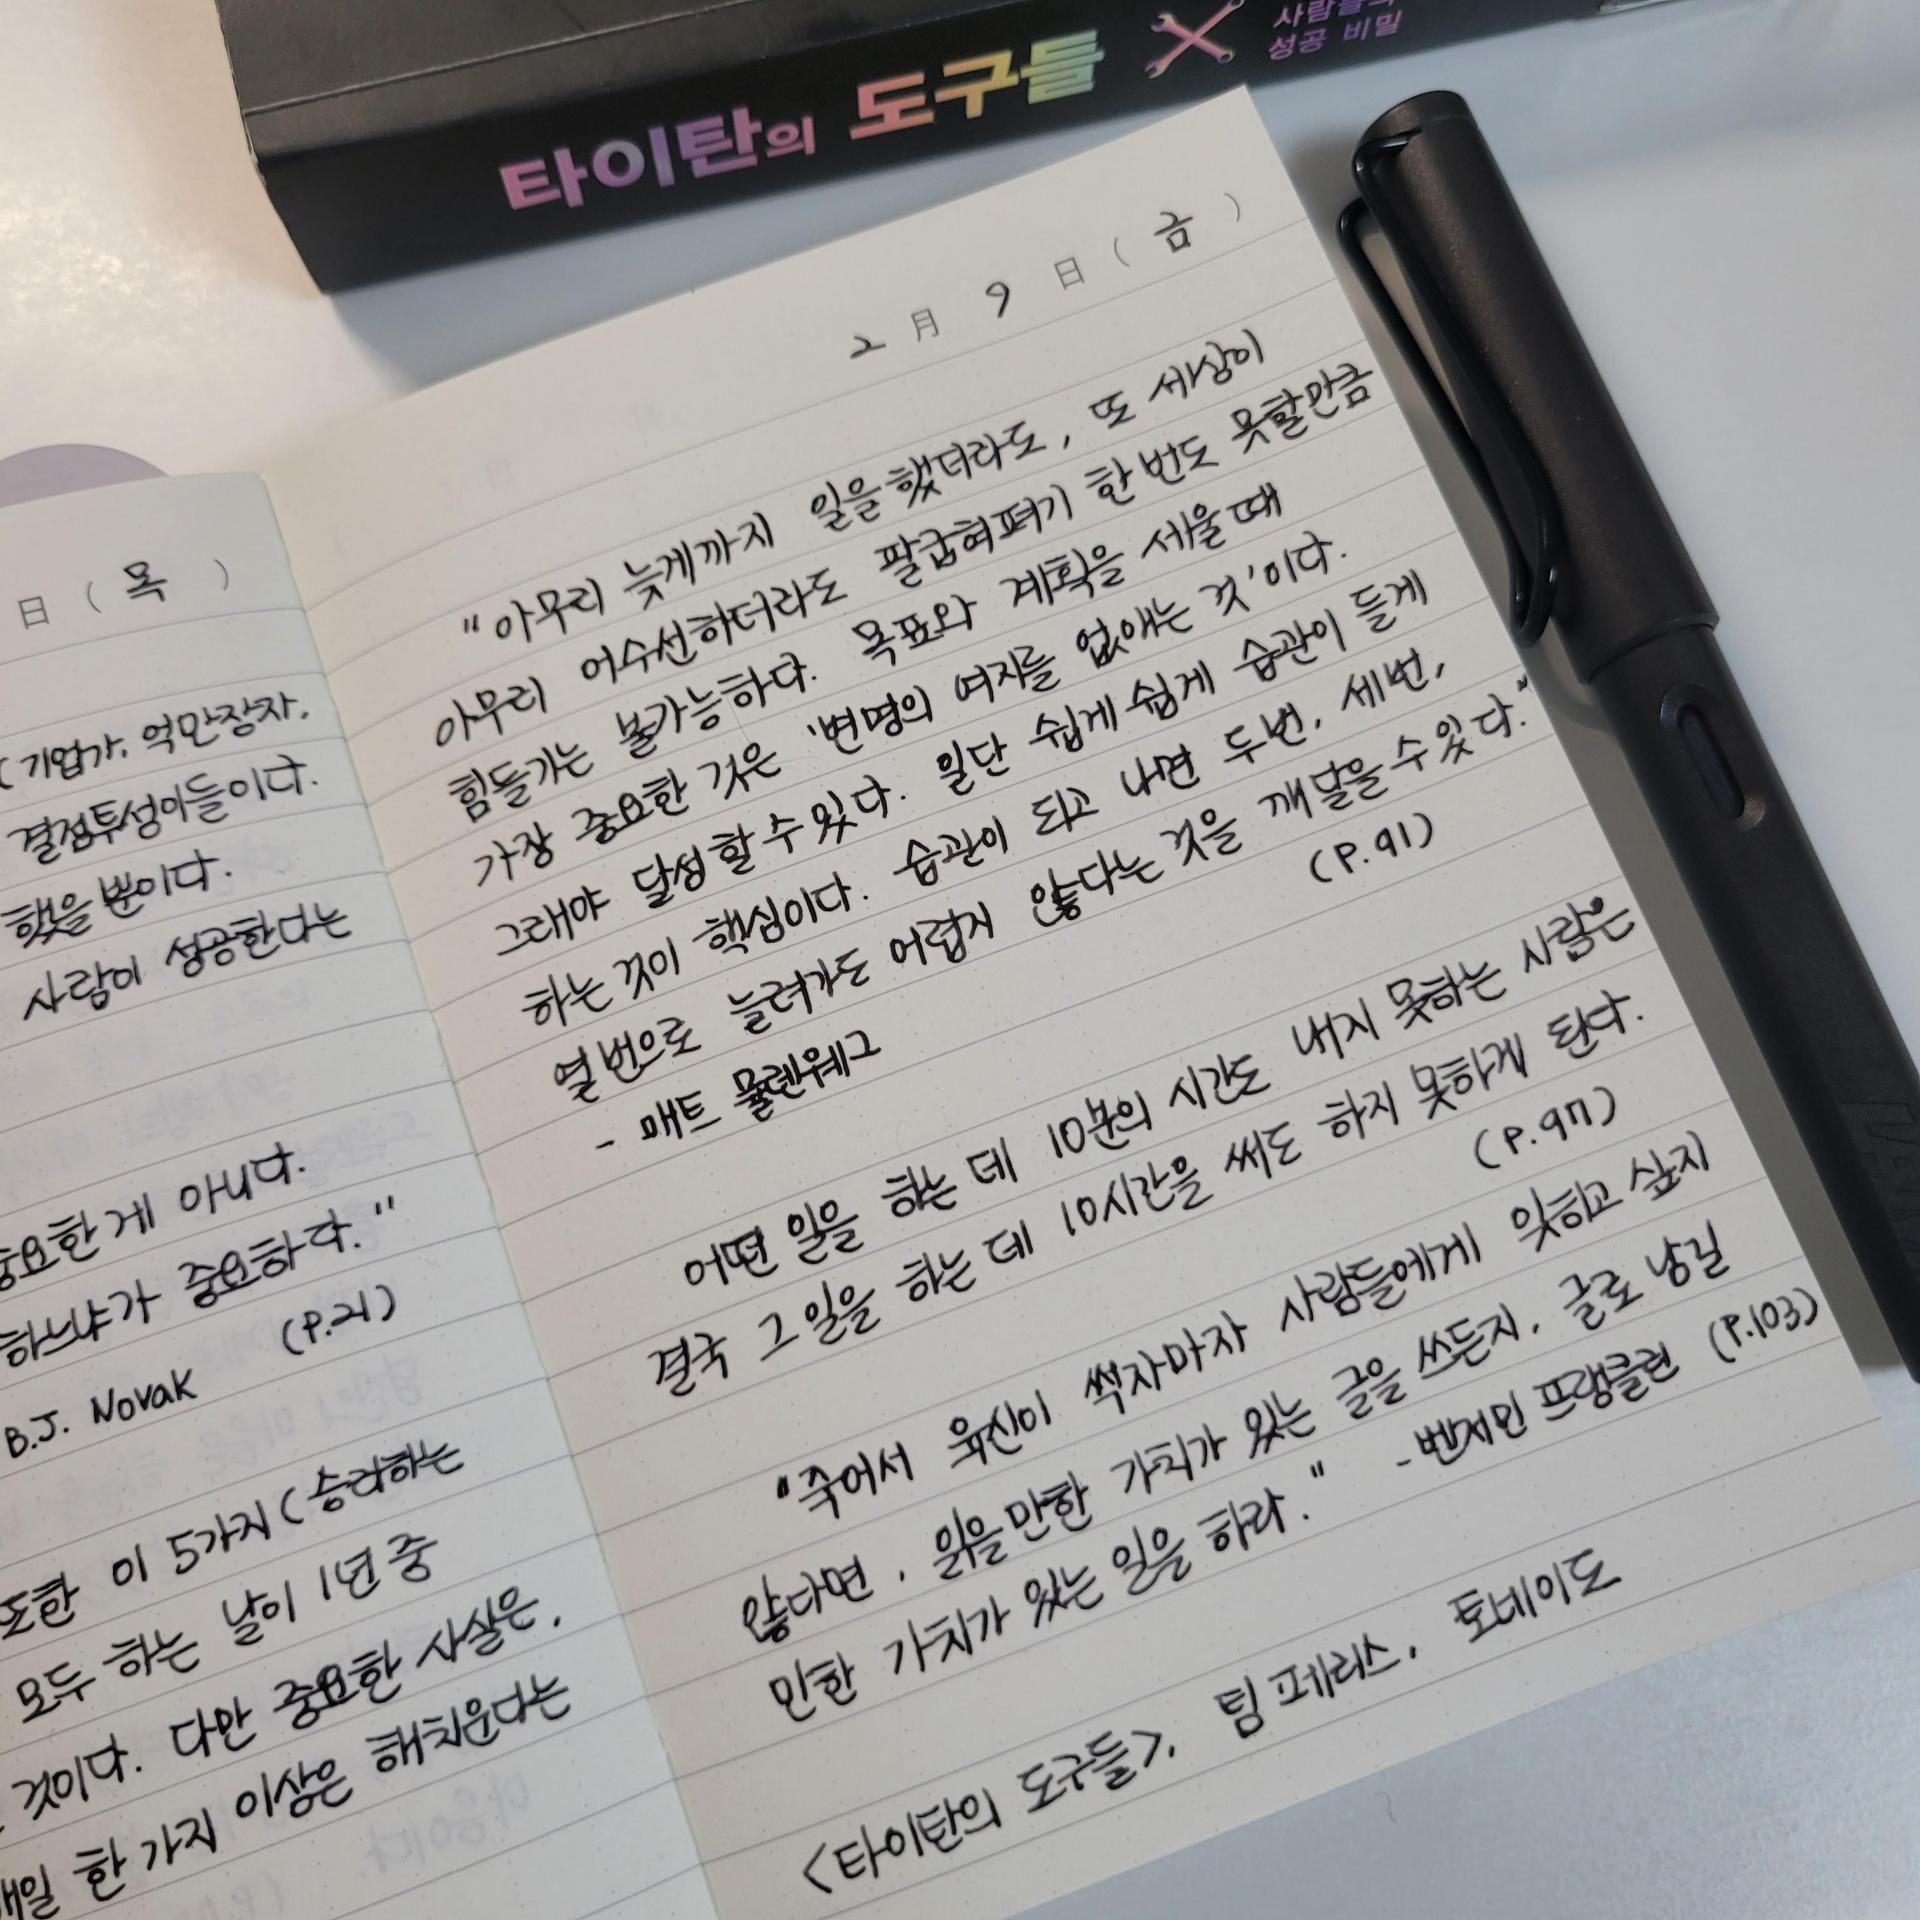 타이탄의 도구들
성공 비밀
日 ( 목 )
( 기업가, 억만장자,
결점투성이들이다.
했을 뿐이다.
사람이 성공한다는
중요한 게 아니다.
하느냐가 중요하다."
(P.21)
B.J. Novak
또한 이 5가지 ( 승리하는
모두 하는 날이 1년 중
것이다. 다만 중요한 사실은,
매일 한 가지 이상은 해치운다는
2 月 9 日 ( 금 )
"아무리 늦게까지 일을 했더라도, 또 세상이
아무리 어수선하더라도 팔굽혀펴기 한 번도 못할만큼
힘들기는 불가능하다. 목표와 계획을 세울 때
가장 중요한 것은 '변명의 여지를 없애는 것'이다.
그래야 달성할 수 있다. 일단 쉽게 쉽게 습관이 들게
하는 것이 핵심이다. 습관이 되고 나면 두번, 세번,
열 번으로 늘려가도 어렵지 않다는 것을 깨달을 수 있다."
- 매트 뮬렌웨그
(P.91)
어떤 일을 하는 데 10분의 시간도 내지 못하는 사람은
결국 그 일을 하는 데 10시간을 써도 하지 못하게 된다.
(P.97)
"죽어서 육신이 썩자마자 사람들에게 잊히고 싶지
않다면, 읽을만한 가치가 있는 글을 쓰든지, 글로 남길
만한 가치가 있는 일을 하라." - 벤저민 프랭클린 (P.103)
<타이탄의 도구들>, 팀 페리스, 토네이도